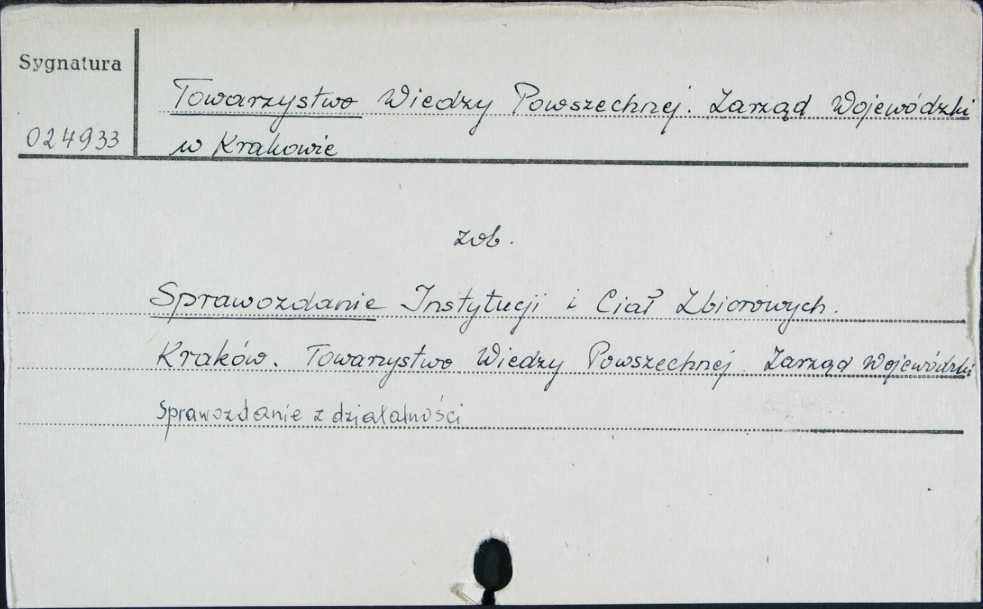 Sygnatura
024933
Towarzystwo Wiedzy Powszechnej. Zarząd Wojewódzki
w Krakowie
zob.
Sprawozdanie Instytucji i Ciał Zbiorowych.
Kraków. Towarzystwo Wiedzy Powszechnej. Zarząd Wojewódzki
Sprawozdanie z działalności